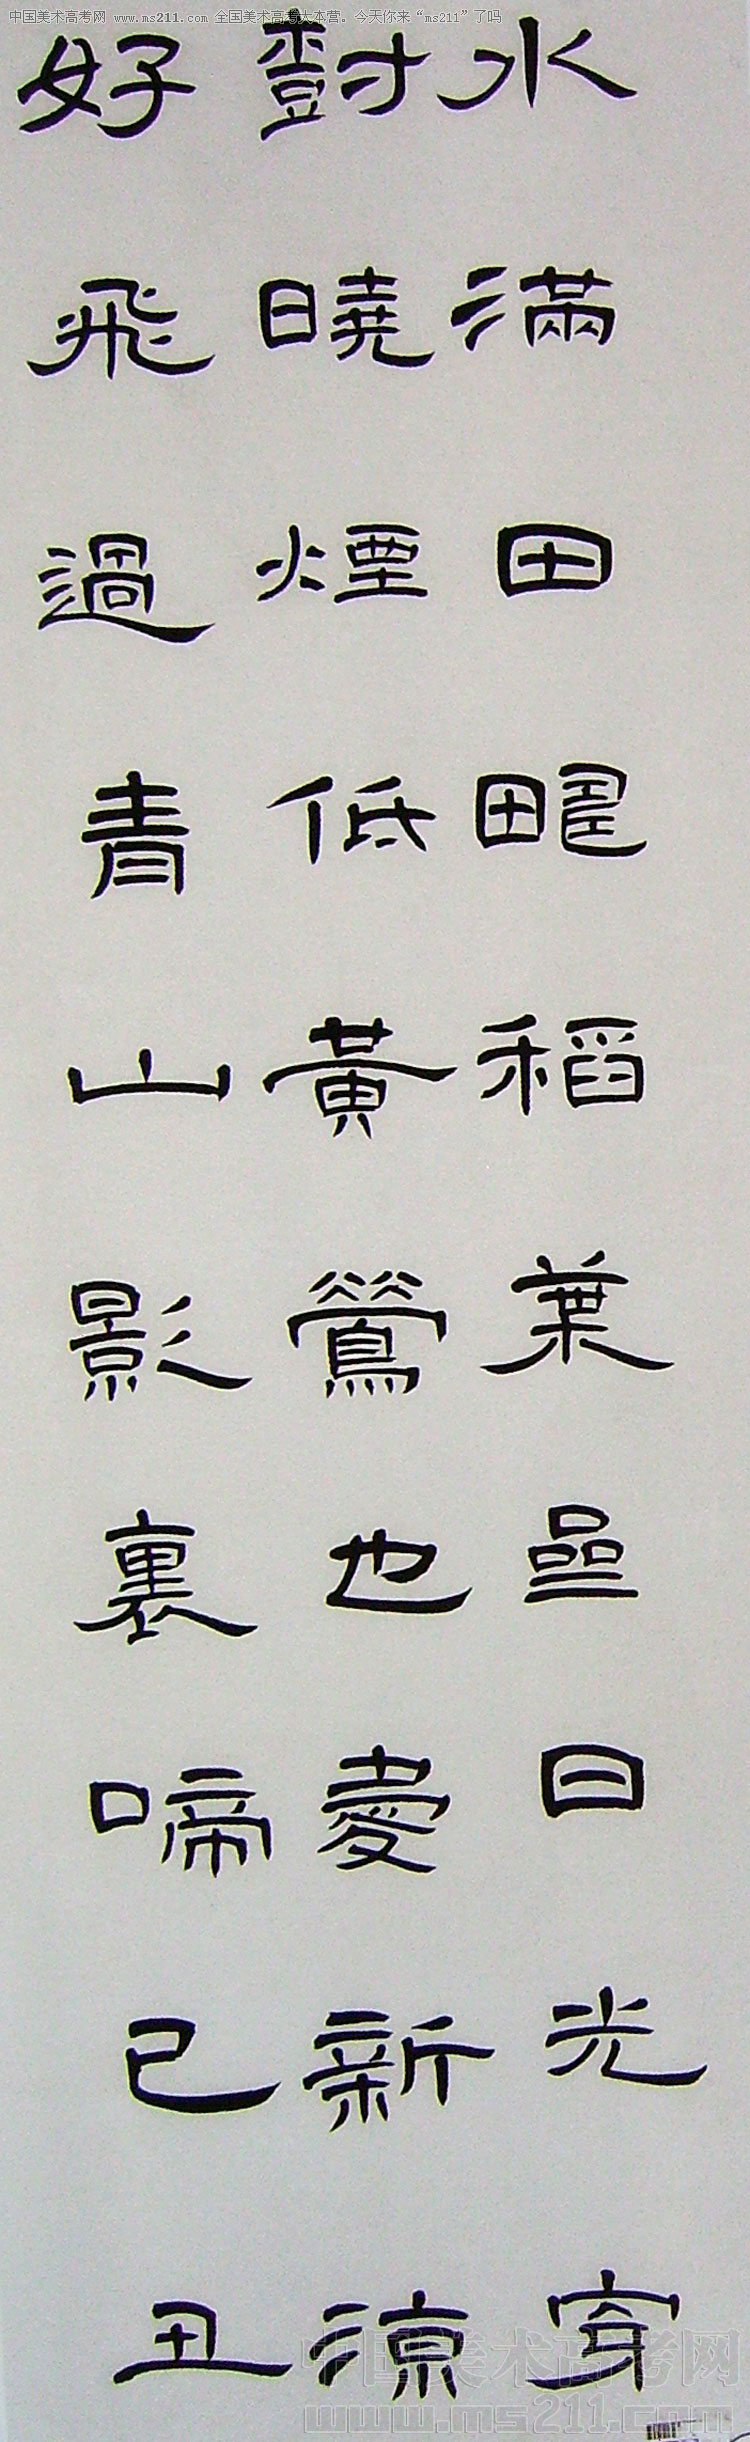 中国美术高考网 www.ms211.com 全国美术高考大本营。今天你来“ms211”了吗
水滿田疇稻葉齊日光穿
樹曉煙低黃鶯也愛新涼
好飛過青山影裏啼己丑
中国美术高考网
www.ms211.com